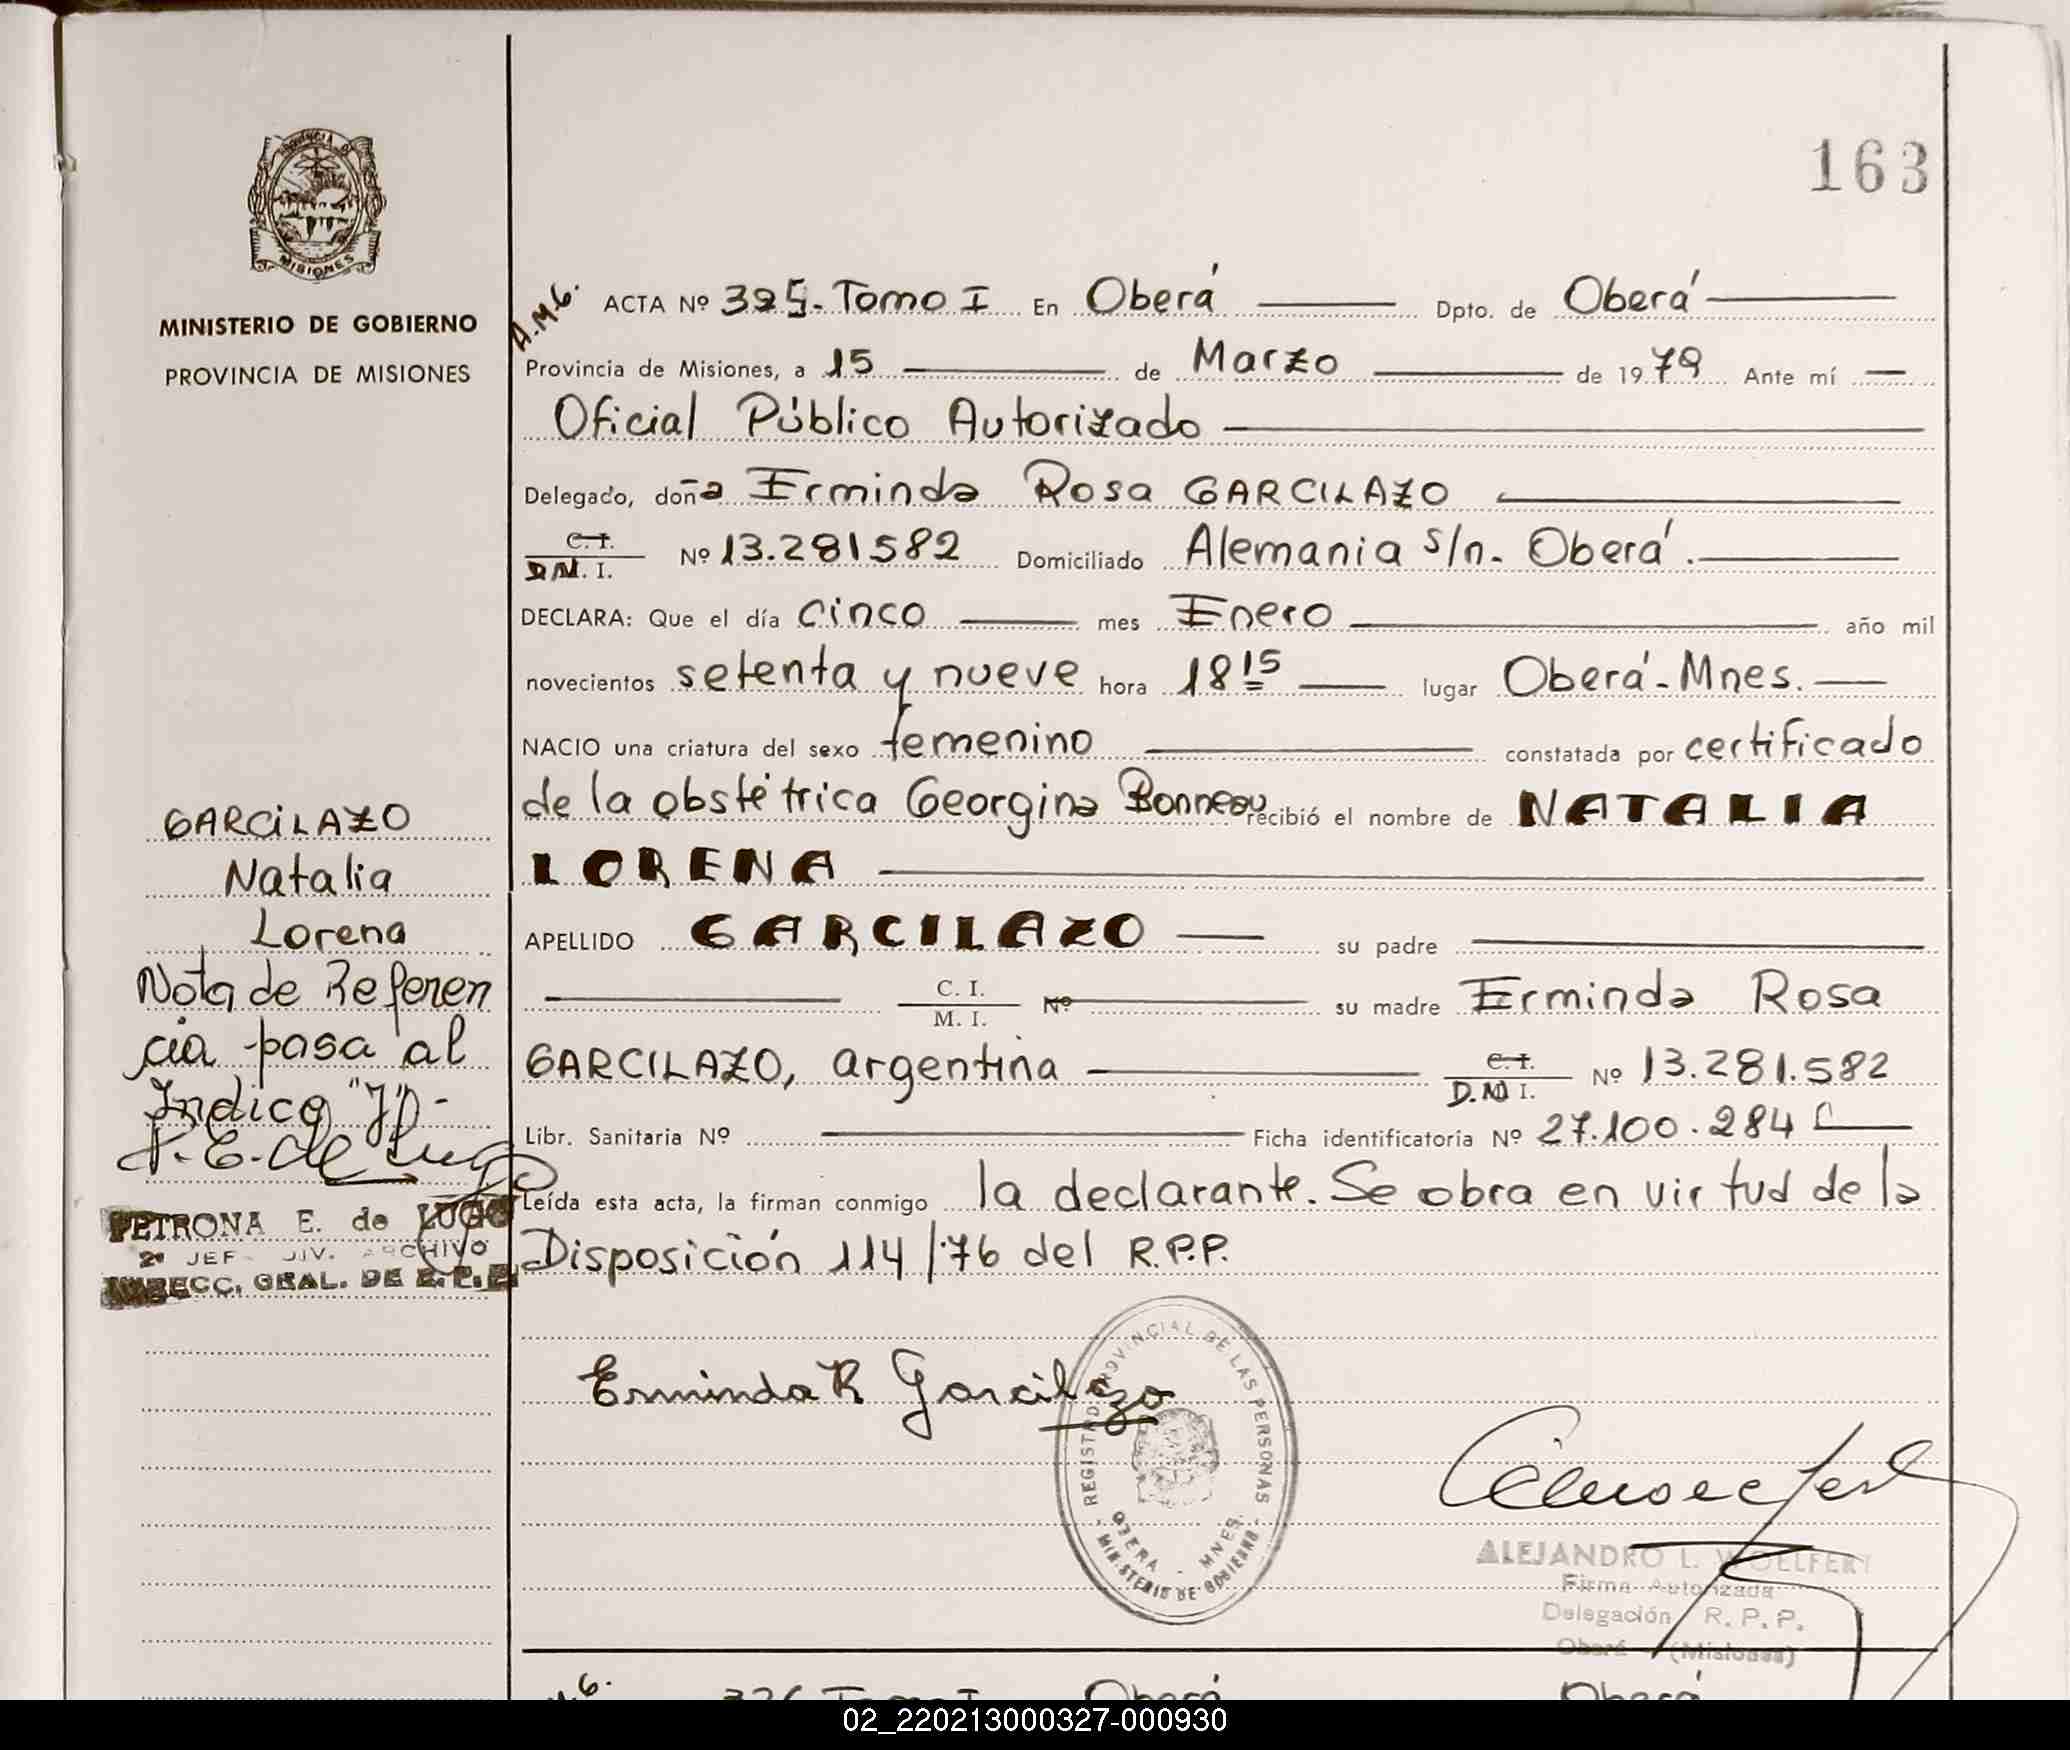 163
PROVINCIA DE
MISIONES
MINISTERIO DE GOBIERNO
PROVINCIA DE MISIONES
A.M.G.
ACTA Nº 325-Tomo I En Oberá Dpto. de Oberá
Provincia de Misiones, a 15 de Marzo de 1979 Ante mí
Oficial Público Autorizado
Delegado, doña Erminda Rosa GARCILAZO
C. I.
D.N. I. Nº 13.281582 Domiciliado Alemania s/n. Oberá.
DECLARA: Que el día cinco mes Enero año mil
novecientos setenta y nueve hora 18 15 lugar Oberá-Mnes.
NACIO una criatura del sexo femenino constatada por certificado
de la obstétrica Georgina Bonneau recibió el nombre de NATALIA
LORENA
APELLIDO GARCILAZO su padre
C. I.
M. I. Nº su madre Erminda Rosa
GARCILAZO, argentina C. I.
D.N. I. Nº 13.281.582
Libr. Sanitaria Nº Ficha identificatoria Nº 27.100.284
Leída esta acta, la firman conmigo la declarante. Se obra en virtud de la
Disposición 114/76 del R.P.P.
GARCILAZO
Natalia
Lorena
Nota de Referen
cia pasa al
Indice "J"-
P. E. de Lugo
PETRONA E. de LUGO
2º JEF DIV. ARCHIVO
DIRECC. GRAL. DE R.P.P.
Erminda R Garcilazo
REGISTRO PROVINCIAL DE LAS PERSONAS
OBERA - MNES.
- MINISTERIO DE GOBIERNO -
ALEJANDRO L. WOELFERT
Firma Autorizada
Delegación R. P. P.
Oberá (Misiones)
326 Tomo I Oberá Oberá
02_220213000327-000930